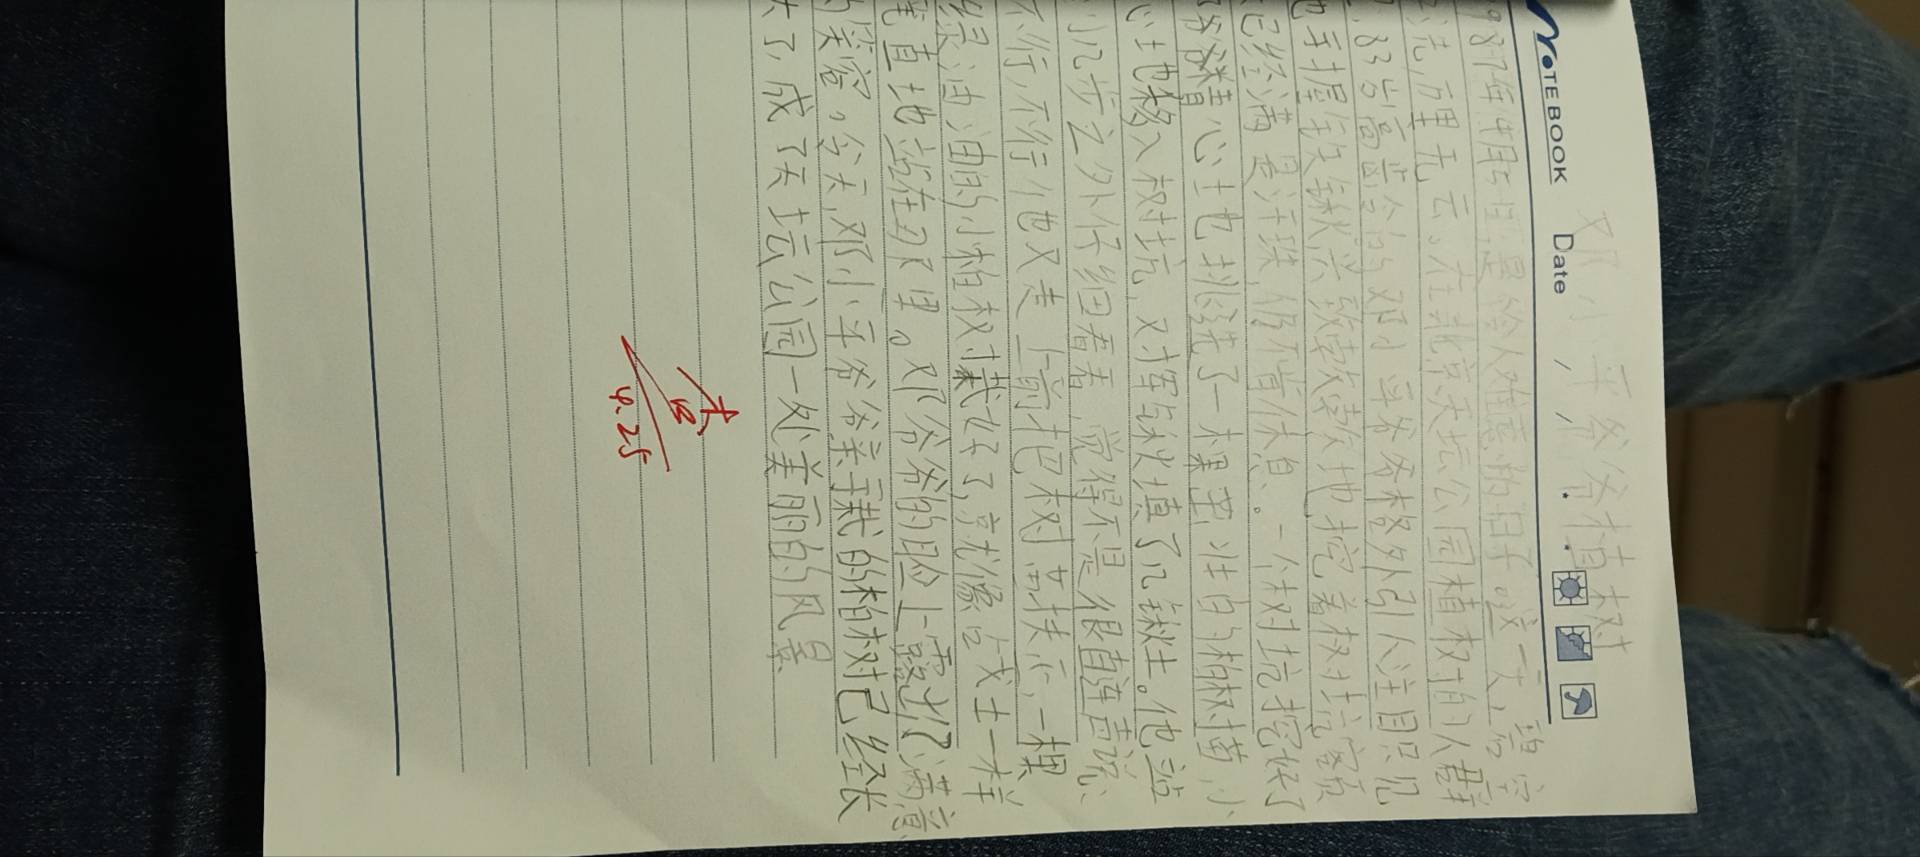 NOTEBOOK Date / /
邓小平爷爷植树
987年4月5日,是令人难忘的日子。这一天,碧空
洗,万里无云。在北京天坛公园植树的人群
,83岁高龄的邓小平爷爷格外引人注目。只见
他手握铁锹,兴致勃勃地挖着树坑,额
已经满是汗珠,仍不肯休息。一个树坑挖好了
爷爷精心地挑选了一棵茁壮的柏树苗,小
心地移入树坑,又挥锹填了几锹土。他站
到几步之外仔细看看,觉得不是很直,连声说:
不行,不行!他又走上前把树苗扶正。一棵
绿油油的小柏树栽好了,就像战士一样
笔直地站在那里。邓爷爷的脸上露出了满意
的笑容。今天,邓小平爷爷亲手栽的柏树已经长
大了,成了天坛公园一处美丽的风景
4.25